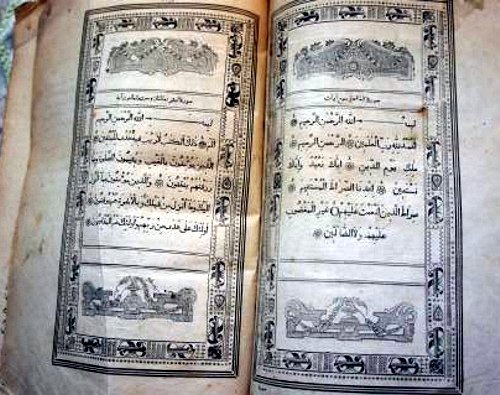 بســـــم الله الرحمن الرحيم
الحمد لله رب العلمين الرحمن الرحيم
ملك يوم الدين اياك نعبد واياك
نستعين اهدنا الصراط المستقيم
صراط الذين انعمت عليهم غير المغضوب
عليهم ولا الضالين
بســـــم الله الرحمن الرحيم
الم ذلك الكتب لا ريب فيه هدى للمتقين
الذين يؤمنون بالغيب ويقيمون الصلوة ومما
رزقنهم ينفقون والذين يؤمنون بما انزل
اليك وما انزل من قبلك وبالاخرة هم يوقنون
اولئك على هدى من ربهم واولئك هم المفلحون